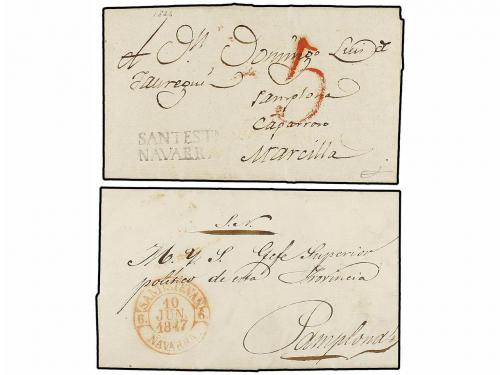 1826
A Dn. Domingo Luis de
Jauregui
5
Pamplona
a
Caparroso
Marcilla
SANTEST
NAVARRA
S. N.
M. Y. S. Gefe Superior
politico de esta Provincia
SANTESTEVAN
6 10 6
JUN.
1847
NAVARRA
Pamplona